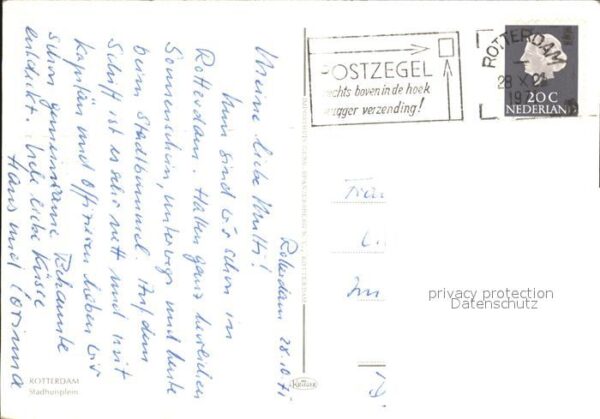 Rotterdam 28.10.71
Meine liebe Mutti!
Nun sind wir schon in
Rotterdam. Haben ganz herrlichen
Sonnenschein, unterwegs und heute
beim Stadtbummel. Auf dem
Schiff ist es sehr nett und mit
Kapitän und Offizieren haben wir
schon gemeinsame Bekannte
entdeckt. Viele liebe Küsse
Hans und Corinna
ROTTERDAM
Stadhuisplein
KRÜGER
POSTZEGEL
rechts boven in de hoek
vlugger verzending!
ROTTERDAM
28 X
19
20 C
NEDERLAND
Frau
L.
Im
privacy protection
Datenschutz